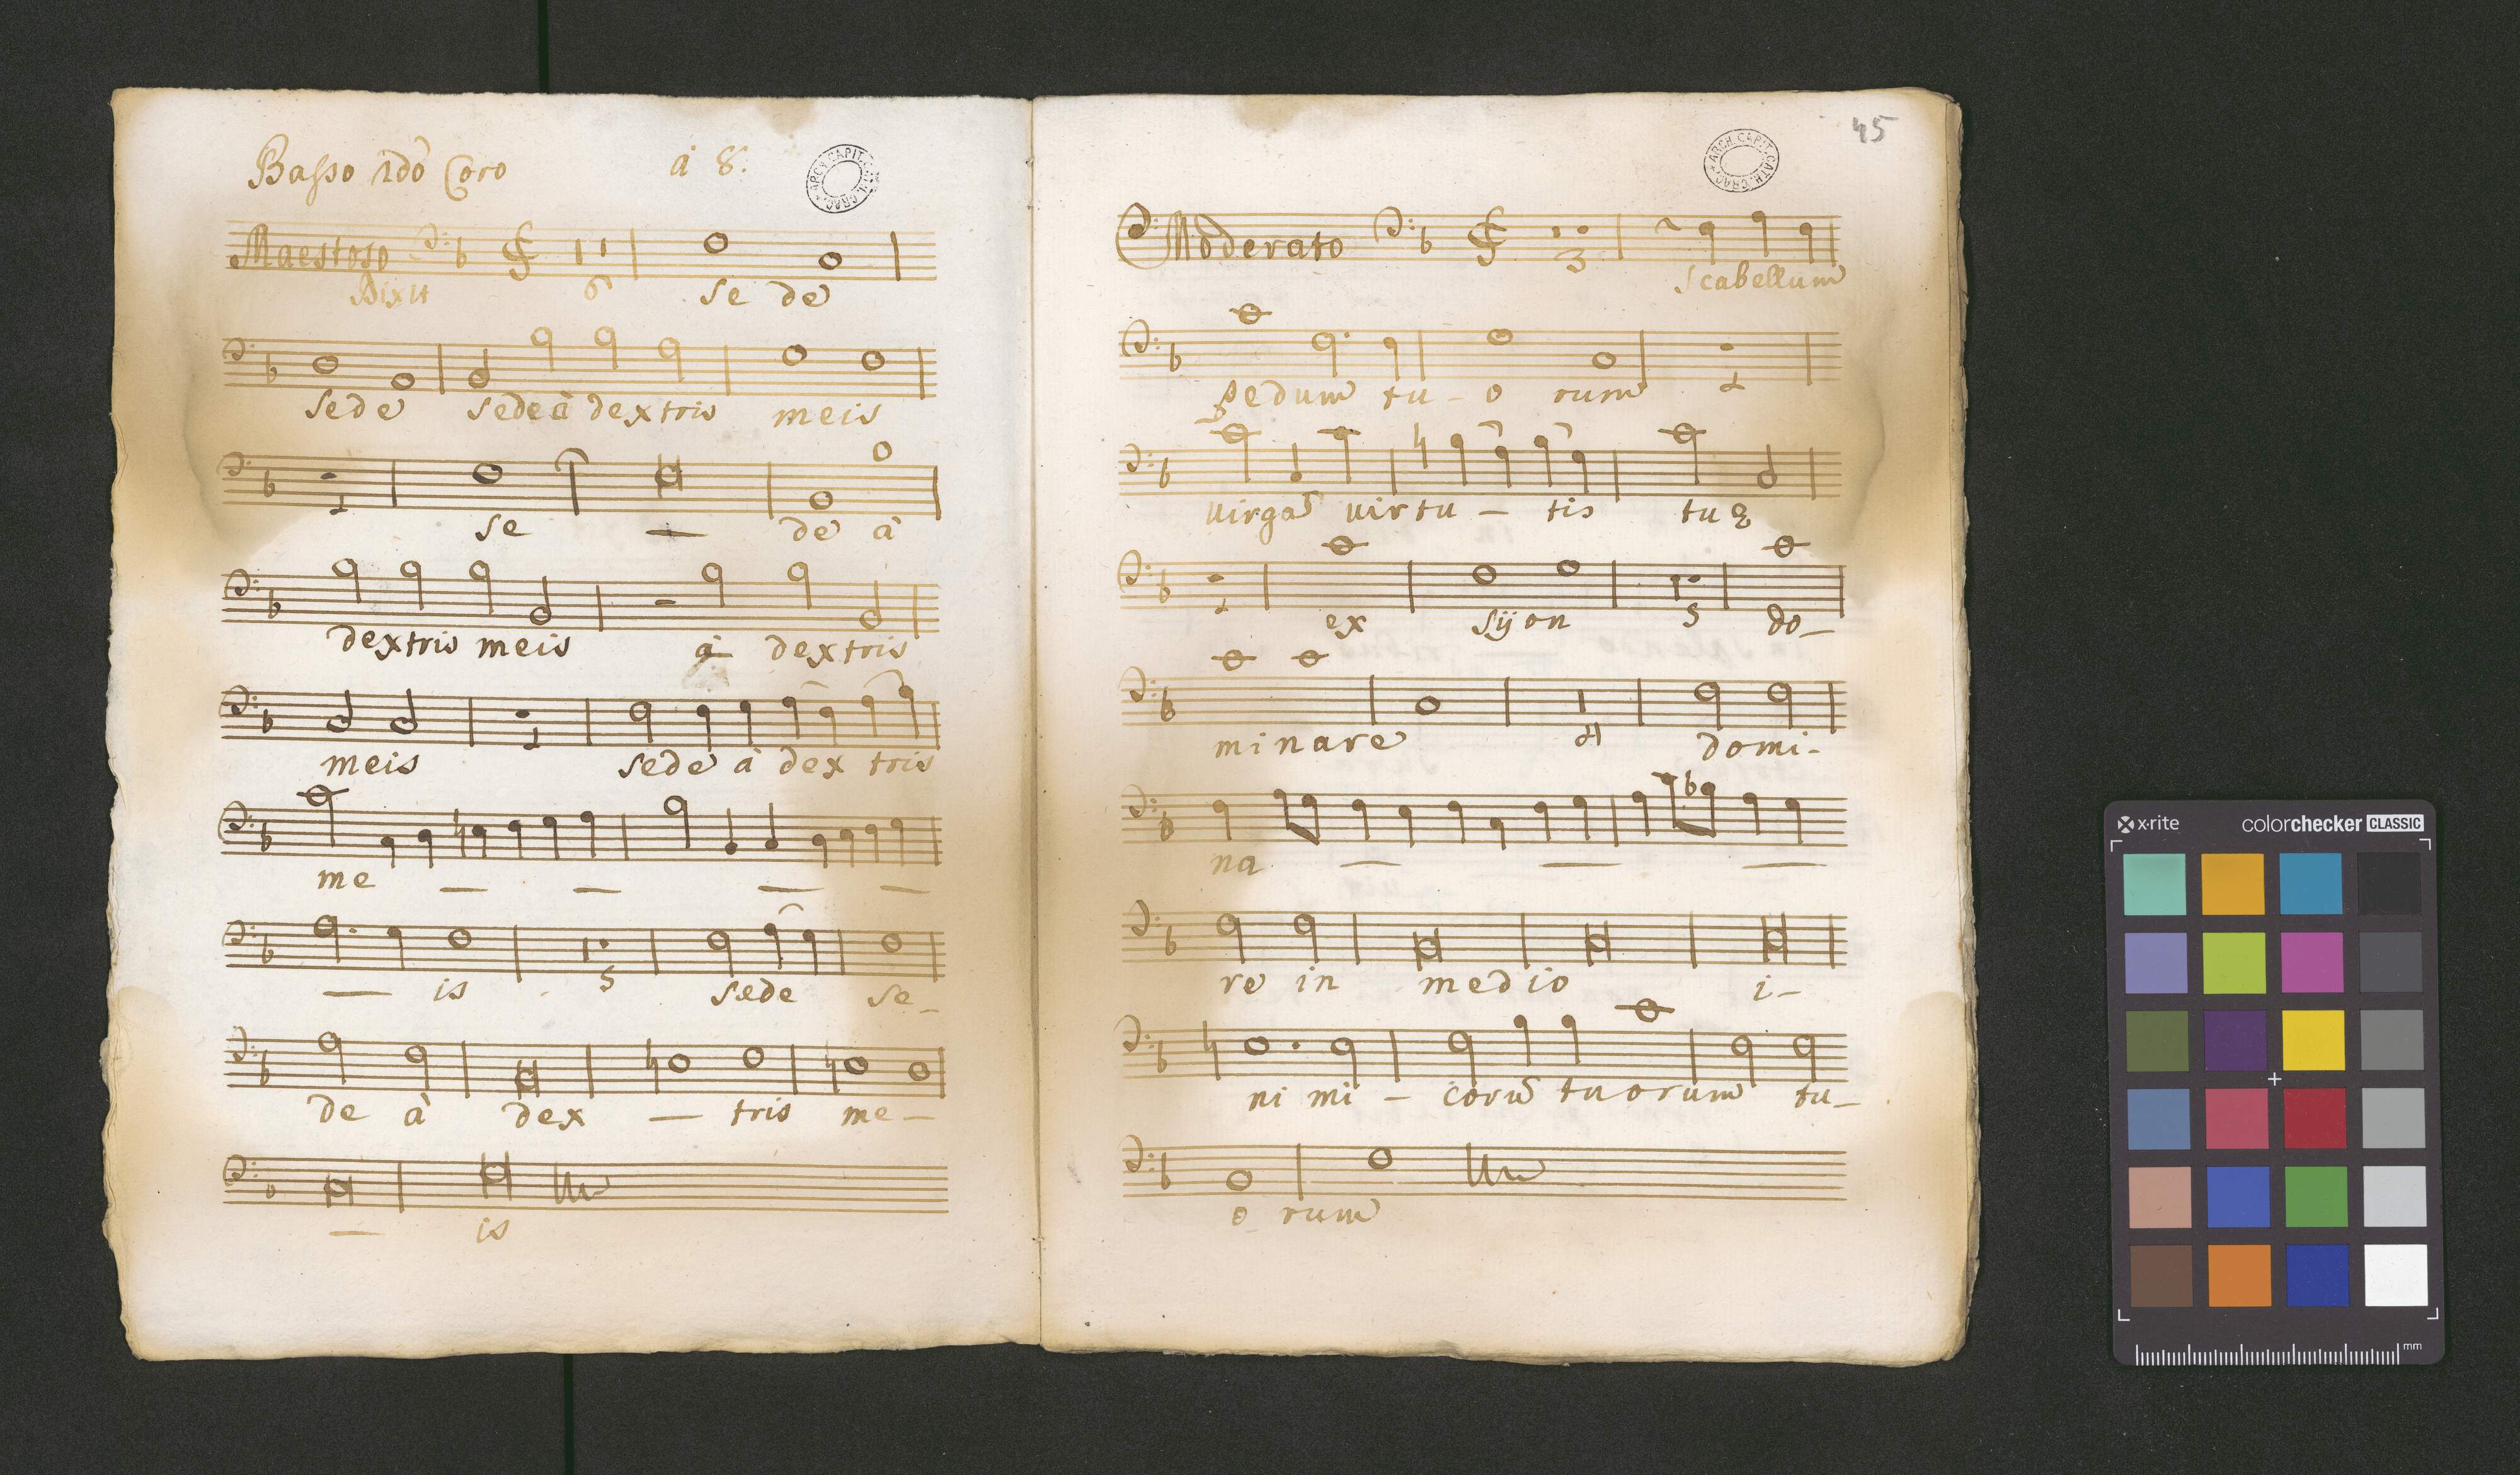 Basso 2do Coro à 8.
ARCH. CAPIT. CATH. CRAC.
Maestoso
Dixit 6 se de
sede sede à dextris meis
1
se — de à
dextris meis à dextris
1
meis sede à dex tris
me — — — —
5
— is sede se-
de à dex — tris me-
— is
45
ARCH. CAPIT. CATH. CRAC.
Moderato 3
scabellum
pedum tu - o rum 1
virgã virtu - tis tuę
1 ex sÿon 5 do-
minare 4 domi-
na — — —
re in medio i-
ni mi - corũ tuorum tu-
o rum
x·rite colorchecker CLASSIC
mm